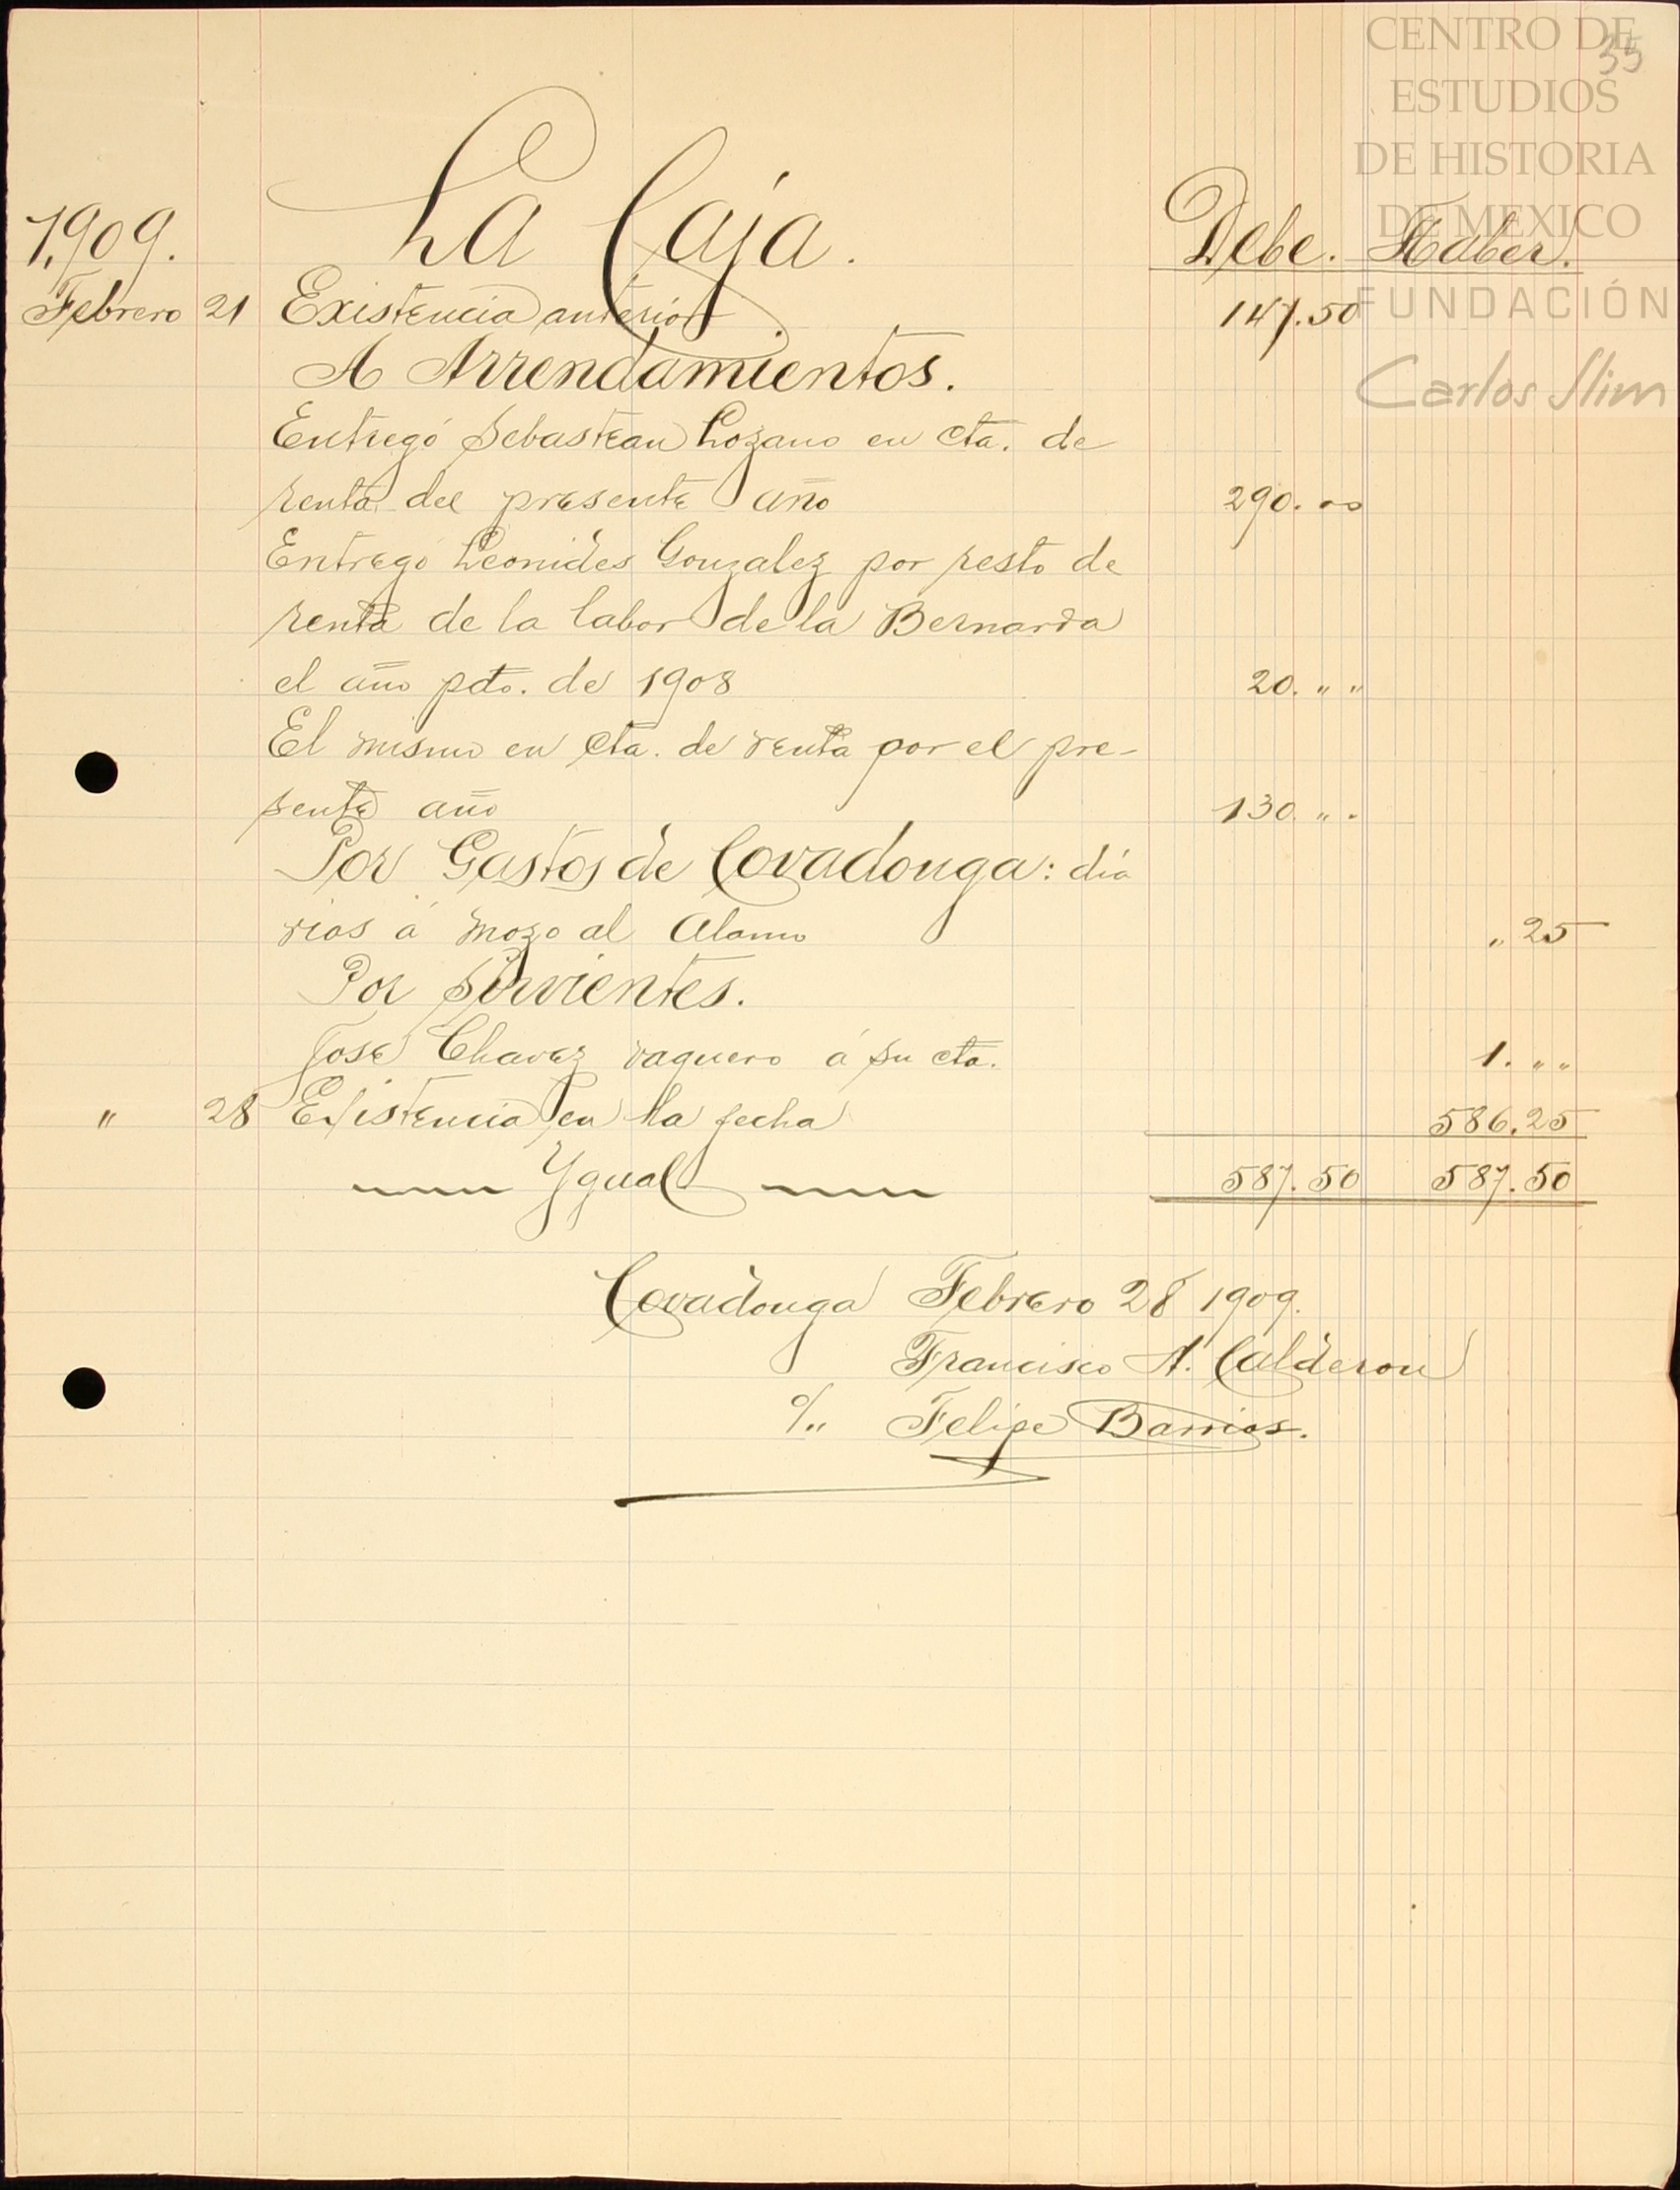 CENTRO DE
ESTUDIOS
DE HISTORIA
DE MEXICO
FUNDACIÓN
Carlos Slim
35
1,909. La Caja. Debe. Haber.
Febrero 21 Existencia anterior 147.50
A Arrendamientos.
Entregó Sebastean Lozano en cta. de
renta del presente año 290.00
Entregó Leonides Gonzalez por resto de
renta de la labor de la Bernarda
el año pdo. de 1908 20. " "
El mismo en cta. de renta por el pre-
sente año 130. " "
Por Gastos de Covadonga: dia
rios á mozo al Alamo " 25
Por Sirvientes.
José Chavez vaquero á su cta. 1. " "
" 28 Existencia en la fecha 586.25
Ygual 587.50 587.50
Covadonga Febrero 28 1909.
Francisco A. Calderon
Felipe Barrios.